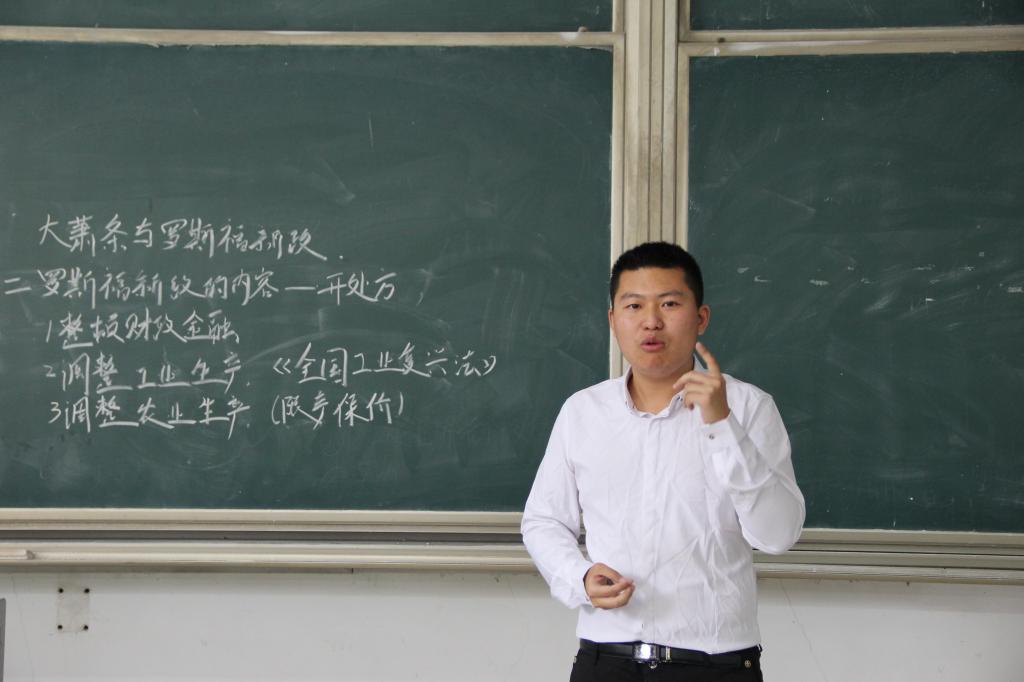 大萧条与罗斯福新政.
二罗斯福新政的内容—开处方
1整顿财政金融
2调整工业生产.《全国工业复兴法》
3调整农业生产.(限产保价)